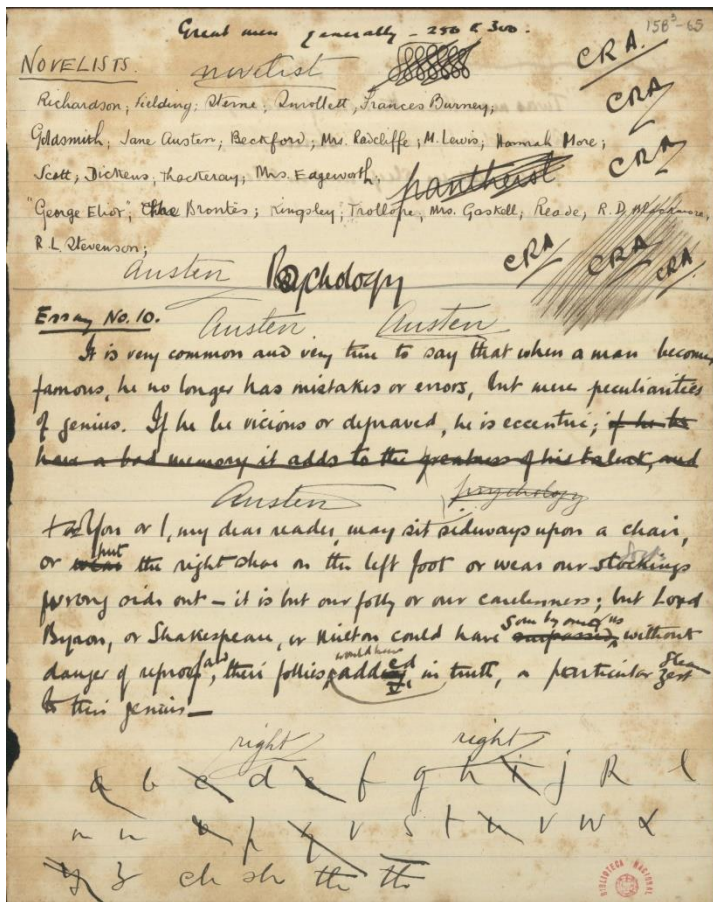 Great men generally - 250 to 300.
158³-65
NOVELISTS.
novelist
CRA.
Richardson; Fielding; Sterne; Smollett; Frances Burney;
CRA
Goldsmith; Jane Austen; Beckford; Mrs. Radcliffe; M. Lewis; Hannah More;
CRA
Scott; Dickens; Thackeray; Mrs. Edgeworth;
pantheist
"George Eliot"; The Brontës; Kingsley; Trollope; Mrs. Gaskell; Reade; R.D. Blackmore;
R L Stevenson;
CRA CRA CRA
Austen Psychology
Essay No. 10.
Austen Austen
It is very common and very true to say that when a man becomes
famous, he no longer has mistakes or errors, but mere peculiarities
of genius. If he be vicious or depraved, he is eccentric; if he
have a bad memory it adds to the greatness of his, and
Austen psychology
You or I, my dear reader, may sit sideways upon a chair,
or put the right shoe on the left foot or wear our stockings
wrong side out – it is but our folly or our carelessness; but Lord
Byron, or Shakespeare, or Milton could have without
danger of reproof, and their follies would have added in truth, a particular zest
to their genius —
right right
a b c d e f g h i j k l
m n o p q r s t u v w x
y z ch sh th th
BIBLIOTECA NACIONAL